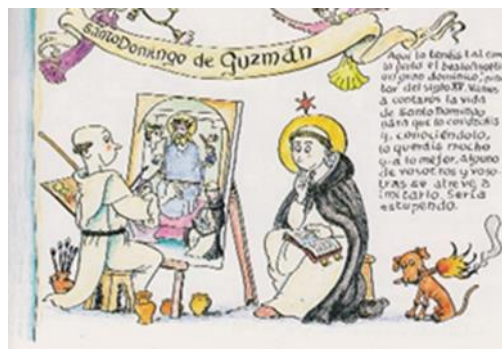 Santo Domingo de Guzmán
Aquí lo tenéis tal como
lo pintó el beato Angélico
un gran dominico, pin-
tor del siglo XV. Vamos
a contaros la vida
de Santo Domingo
para que lo conozcáis
y, conociéndolo,
lo queráis mucho
y a lo mejor, alguno
de vosotros y voso-
tras se atreve a
imitarlo. Sería
estupendo.